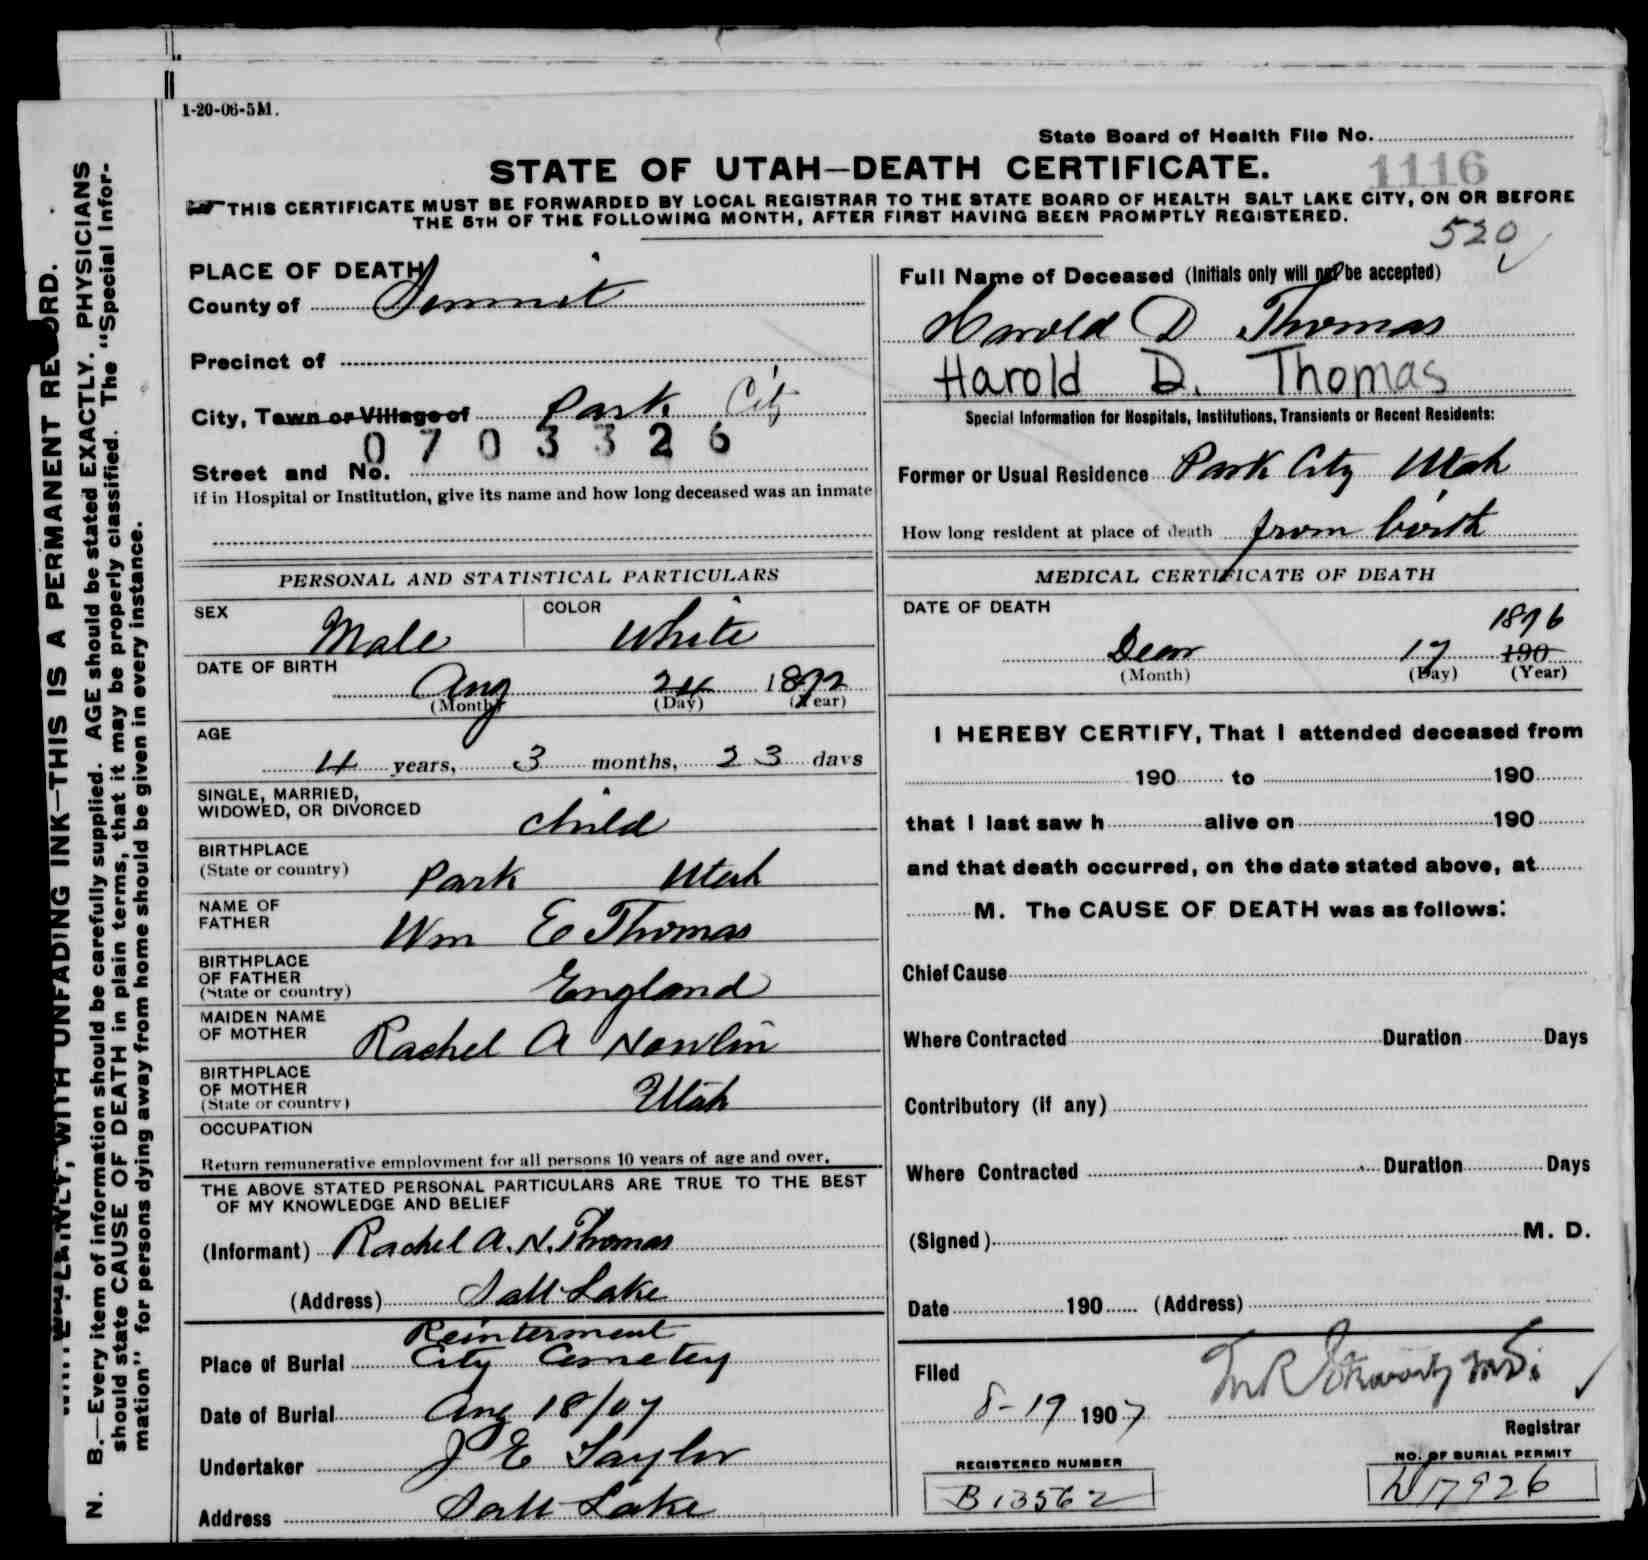 1-20-06-5M.
State Board of Health File No.
1116
STATE OF UTAH—DEATH CERTIFICATE.
THIS CERTIFICATE MUST BE FORWARDED BY LOCAL REGISTRAR TO THE STATE BOARD OF HEALTH SALT LAKE CITY, ON OR BEFORE
THE 5TH OF THE FOLLOWING MONTH, AFTER FIRST HAVING BEEN PROMPTLY REGISTERED.
520
PLACE OF DEATH
County of Summit
Precinct of
City, Town or Village of Park City
0703326
Street and No.
if in Hospital or Institution, give its name and how long deceased was an inmate
Full Name of Deceased (Initials only will not be accepted)
Harold D Thomas
Harold D. Thomas
Special Information for Hospitals, Institutions, Transients or Recent Residents:
Former or Usual Residence Park City Utah
How long resident at place of death from birth
PERSONAL AND STATISTICAL PARTICULARS
SEX Male COLOR White
DATE OF BIRTH
Aug 24 1892
(Month) (Day) (Year)
AGE
4 years, 3 months, 23 days
SINGLE, MARRIED,
WIDOWED, OR DIVORCED child
BIRTHPLACE
(State or country) Park Utah
NAME OF
FATHER Wm E Thomas
BIRTHPLACE
OF FATHER
(State or country) England
MAIDEN NAME
OF MOTHER Rachel A Nowlin
BIRTHPLACE
OF MOTHER
(State or country) Utah
OCCUPATION
Return remunerative employment for all persons 10 years of age and over.
THE ABOVE STATED PERSONAL PARTICULARS ARE TRUE TO THE BEST
OF MY KNOWLEDGE AND BELIEF
(Informant) Rachel A. N. Thomas
(Address) Salt Lake
Reinterment
Place of Burial City Cemetery
Date of Burial Aug 18/07
Undertaker J E Taylor
Address Salt Lake
MEDICAL CERTIFICATE OF DEATH
DATE OF DEATH
1896
17 190
(Month) (Day) (Year)
I HEREBY CERTIFY, That I attended deceased from
190 to 190
that I last saw h alive on 190
and that death occurred, on the date stated above, at
M. The CAUSE OF DEATH was as follows:
Chief Cause
Where Contracted Duration Days
Contributory (if any)
Where Contracted Duration Days
(Signed) M. D.
Date 190 (Address)
Filed
8-19 1907
Registrar
REGISTERED NUMBER
B13562
NO. OF BURIAL PERMIT
17926
N. B.—Every item of information should be carefully supplied. AGE should be stated EXACTLY. PHYSICIANS
should state CAUSE OF DEATH in plain terms, that it may be properly classified. The "Special Infor-
mation" for persons dying away from home should be given in every instance.
WRITE PLAINLY, WITH UNFADING INK—THIS IS A PERMANENT RECORD.